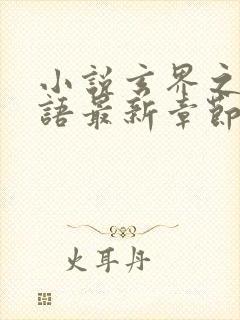 小說玄界之
語最新章節
火耳丹